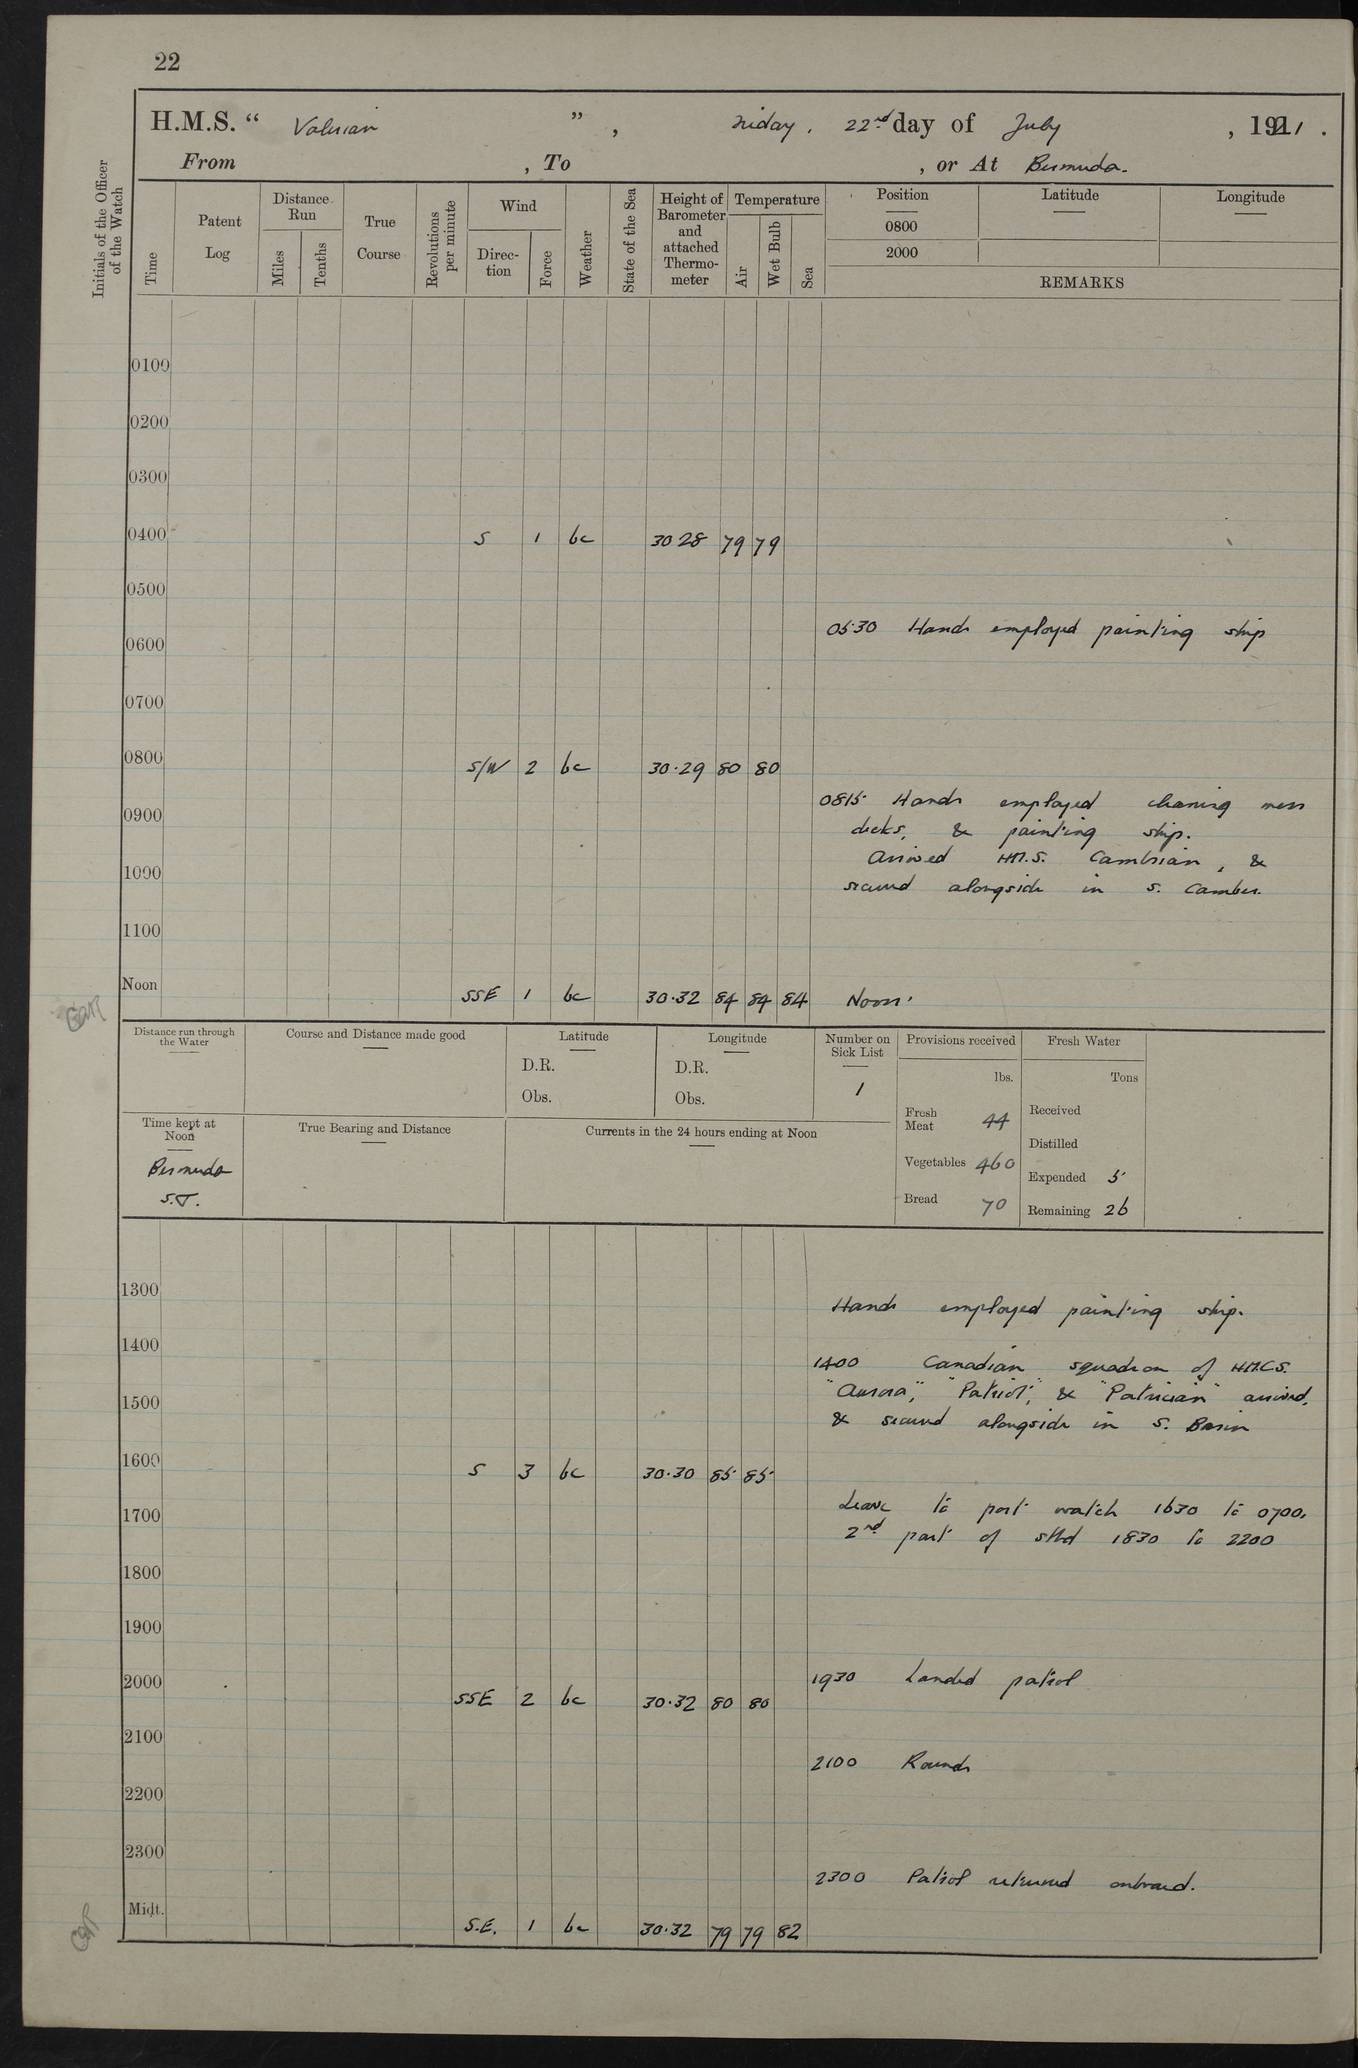 22
H.M.S. “ Valerian ” , Friday, 22nd day of July , 1921 .
From , To , or At Bermuda.
Initials of the Officer of the Watch
Time
Patent Log
Distance Run
Miles
Tenths
True Course
Revolutions per minute
Wind
Direc-tion
Force
Weather
State of the Sea
Height of Barometer and attached Thermo-meter
Temperature
Air
Wet Bulb
Sea
Position
Latitude
Longitude
0800
2000
REMARKS
0100
0200
0300
0400 S 1 bc 30 28 79 79
0500
05.30 Hands employed painting ship
0600
0700
0800 S/W 2 bc 30.29 80 80
0815 Hands employed cleaning mess
0900
decks, & painting ship.
Arrived H.M.S. Cambrian, &
1000
secured alongside in S. Camber.
1100
Noon SSE 1 bc 30.32 84 84 84 Noon.
Distance run through the Water
Course and Distance made good
Latitude
D.R.
Obs.
Longitude
D.R.
Obs.
Number on Sick List
1
Provisions received
lbs.
Fresh Meat 44
Vegetables 460
Bread 70
Fresh Water
Tons
Received
Distilled
Expended 5
Remaining 26
Time kept at Noon
Bermuda
S.T.
True Bearing and Distance
Currents in the 24 hours ending at Noon
1300
Hands employed painting ship.
1400
1400 Canadian squadron of H.M.C.S.
"Aurora", "Patriot", & "Patrician" arrived,
1500
& secured alongside in S. Basin
1600 S 3 bc 30.30 85 85
Leave to port watch 1630 to 0700,
1700
2nd part of stbd 1830 to 2200
1800
1900
1930 Landed patrol
2000 SSE 2 bc 30.32 80 80
2100
2100 Rounds
2200
2300
2300 Patrol returned onboard.
Midt. S.E. 1 bc 30.32 79 79 82